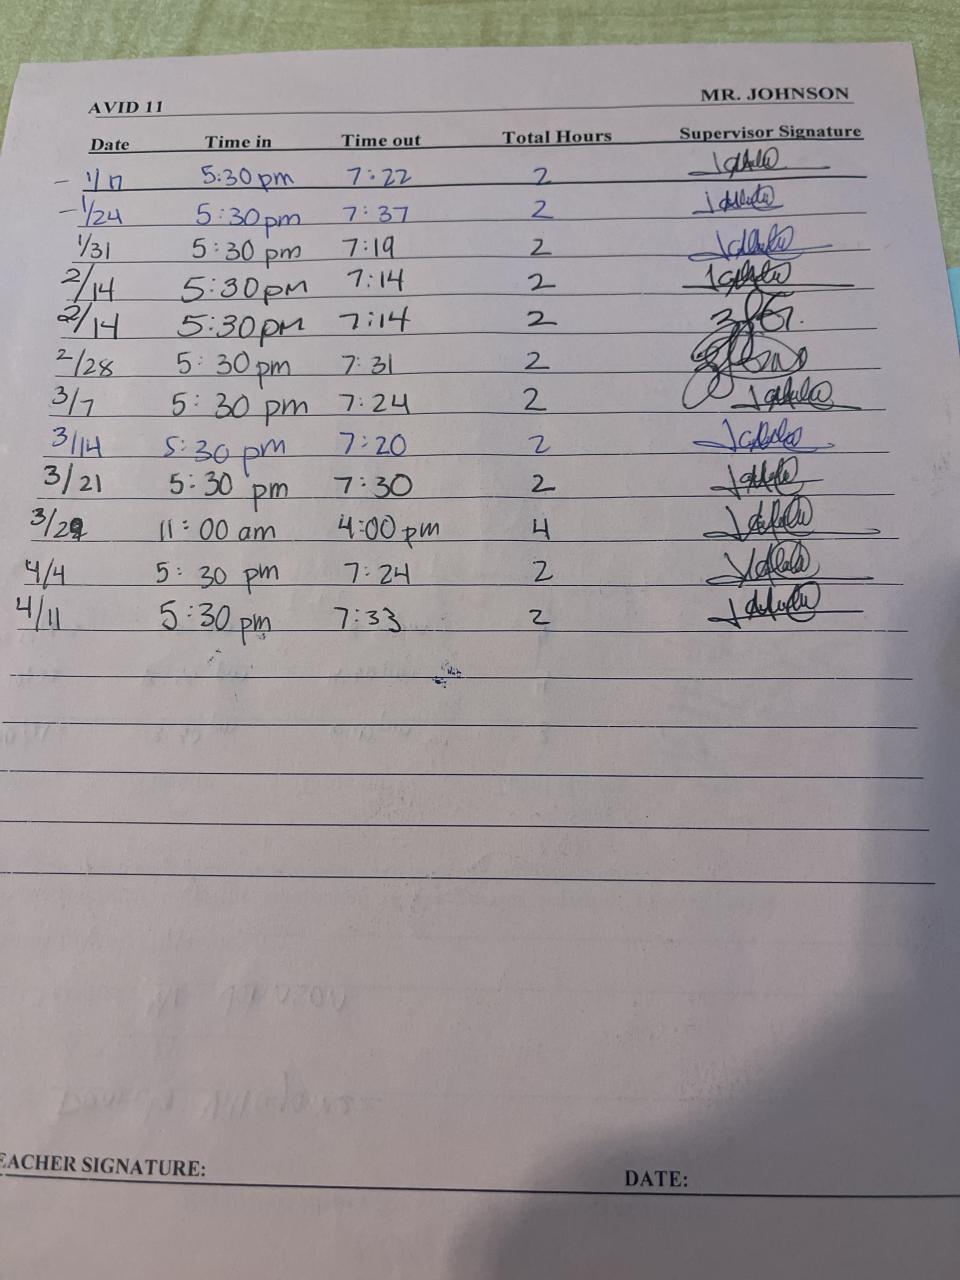 AVID 11 MR. JOHNSON
Date Time in Time out Total Hours Supervisor Signature
1/17 5:30 pm 7:22 2
1/24 5:30 pm 7:37 2
1/31 5:30 pm 7:19 2
2/14 5:30 pm 7:14 2
2/14 5:30 pm 7:14 2
2/28 5:30 pm 7:31 2
3/7 5:30 pm 7:24 2
3/14 5:30 pm 7:20 2
3/21 5:30 pm 7:30 2
3/29 11:00 am 4:00 pm 4
4/4 5:30 pm 7:24 2
4/11 5:30 pm 7:33 2
EACHER SIGNATURE: DATE: